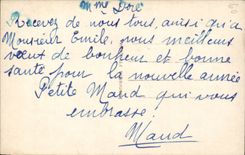 Mme Doré
Recevez de nous tous, ainsi qu'a
Monsieur Emile, nous meilleurs
vœux de bonheur et bonne
santé pour la nouvelle année
Petite Maud qui vous
embrasse.
Maud